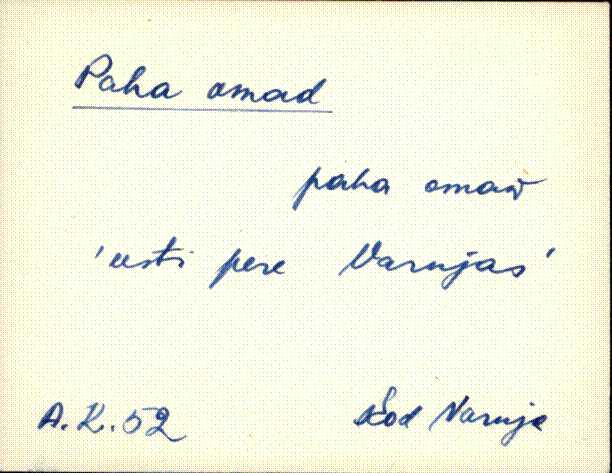 Paha omad
paha omaď
'eesti pere Varnjas'
A.K.52 Kod Varnja